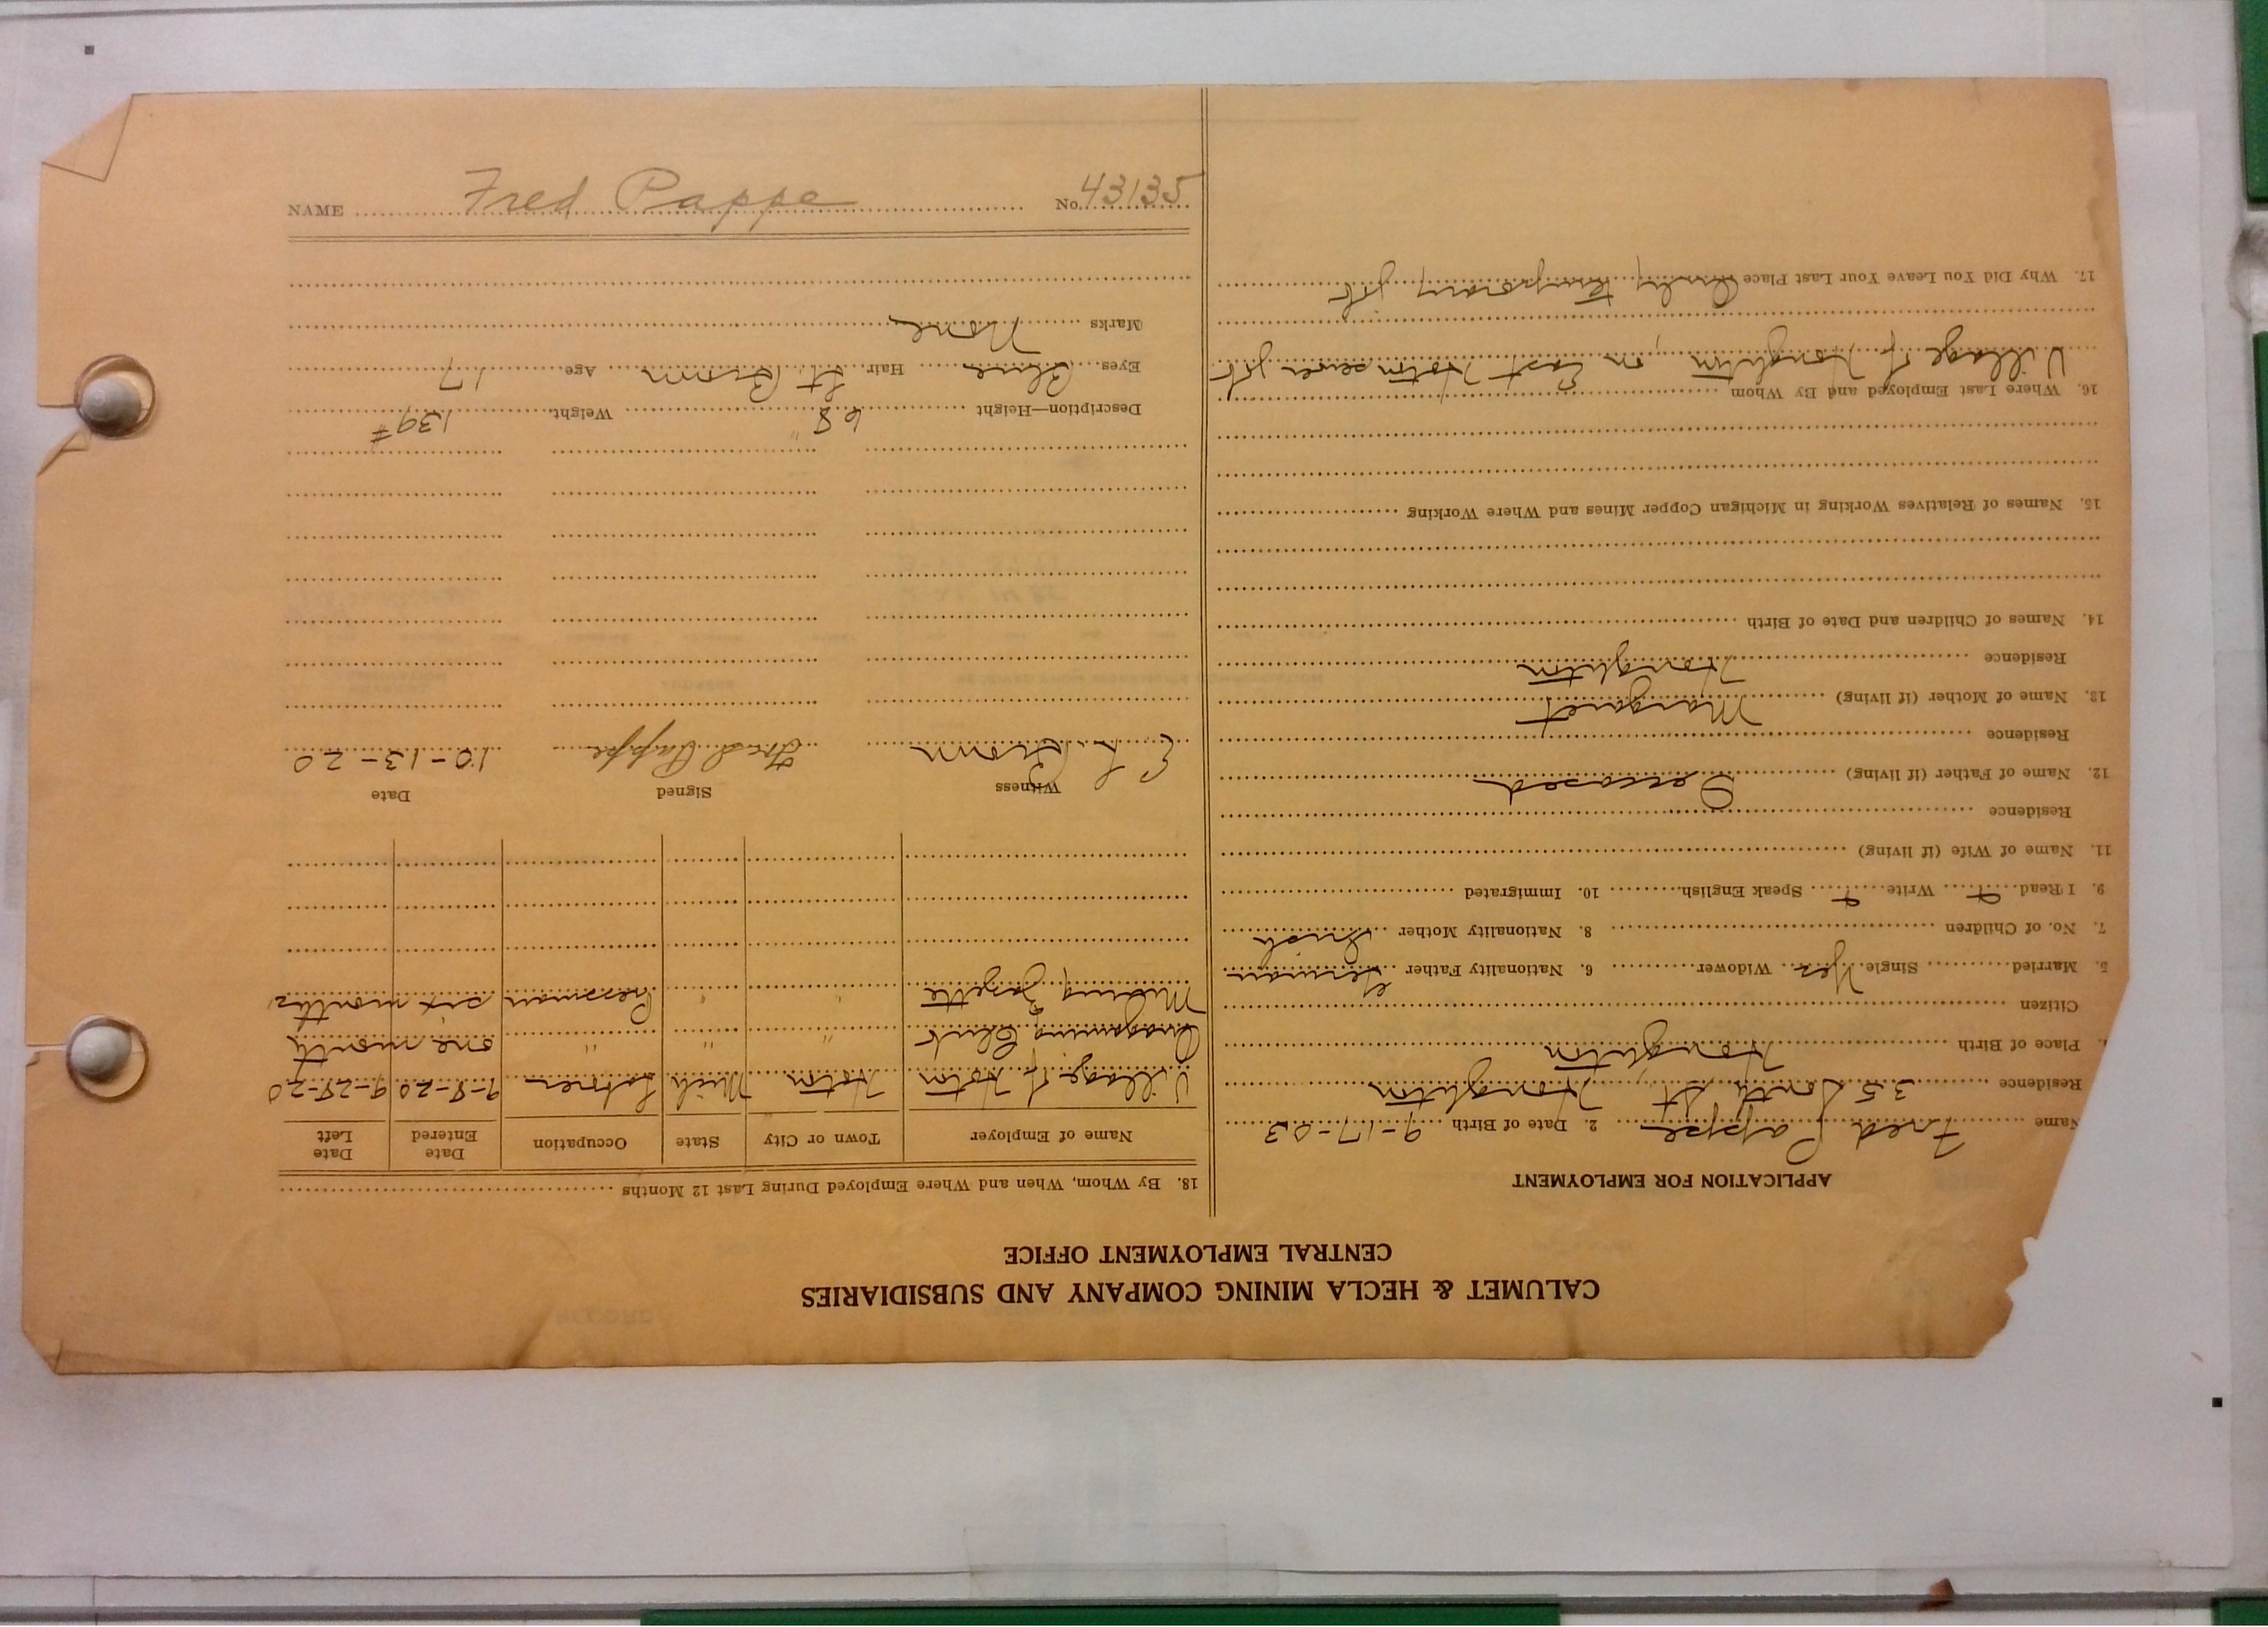 CALUMET & HECLA MINING COMPANY AND SUBSIDIARIES
CENTRAL EMPLOYMENT OFFICE
APPLICATION FOR EMPLOYMENT
Name Fred Pappe 2. Date of Birth 9-17-03
Residence 35 South St Houghton
Place of Birth Houghton
Citizen
5. Married Single Yes Widower 6. Nationality Father German
7. No. of Children 8. Nationality Mother Irish
9. I Read Write Speak English 10. Immigrated
11. Name of Wife (if living)
Residence
12. Name of Father (if living) Deceased
Residence
13. Name of Mother (if living) Margaret
Residence Houghton
14. Names of Children and Date of Birth
15. Names of Relatives Working in Michigan Copper Mines and Where Working
16. Where Last Employed and By Whom
Village of Houghton, on East Hoton sewer job
17. Why Did You Leave Your Last Place Only temporary job
18. By Whom, When and Where Employed During Last 12 Months
Name of Employer Town or City State Occupation Date Entered Date Left
Village of Hoton Hoton Mich Laborer 9-8-20 9-28-20
Onigaming Club " " " one month
Mining Gazette " " Pressman six months
Witness Signed Date
E. L. Brown Fred Pappe 10-13-20
Description—Height 68" Weight 139#
Eyes Blue Hair Lt. Brown Age 17
Marks None
NAME Fred Pappe No. 43135